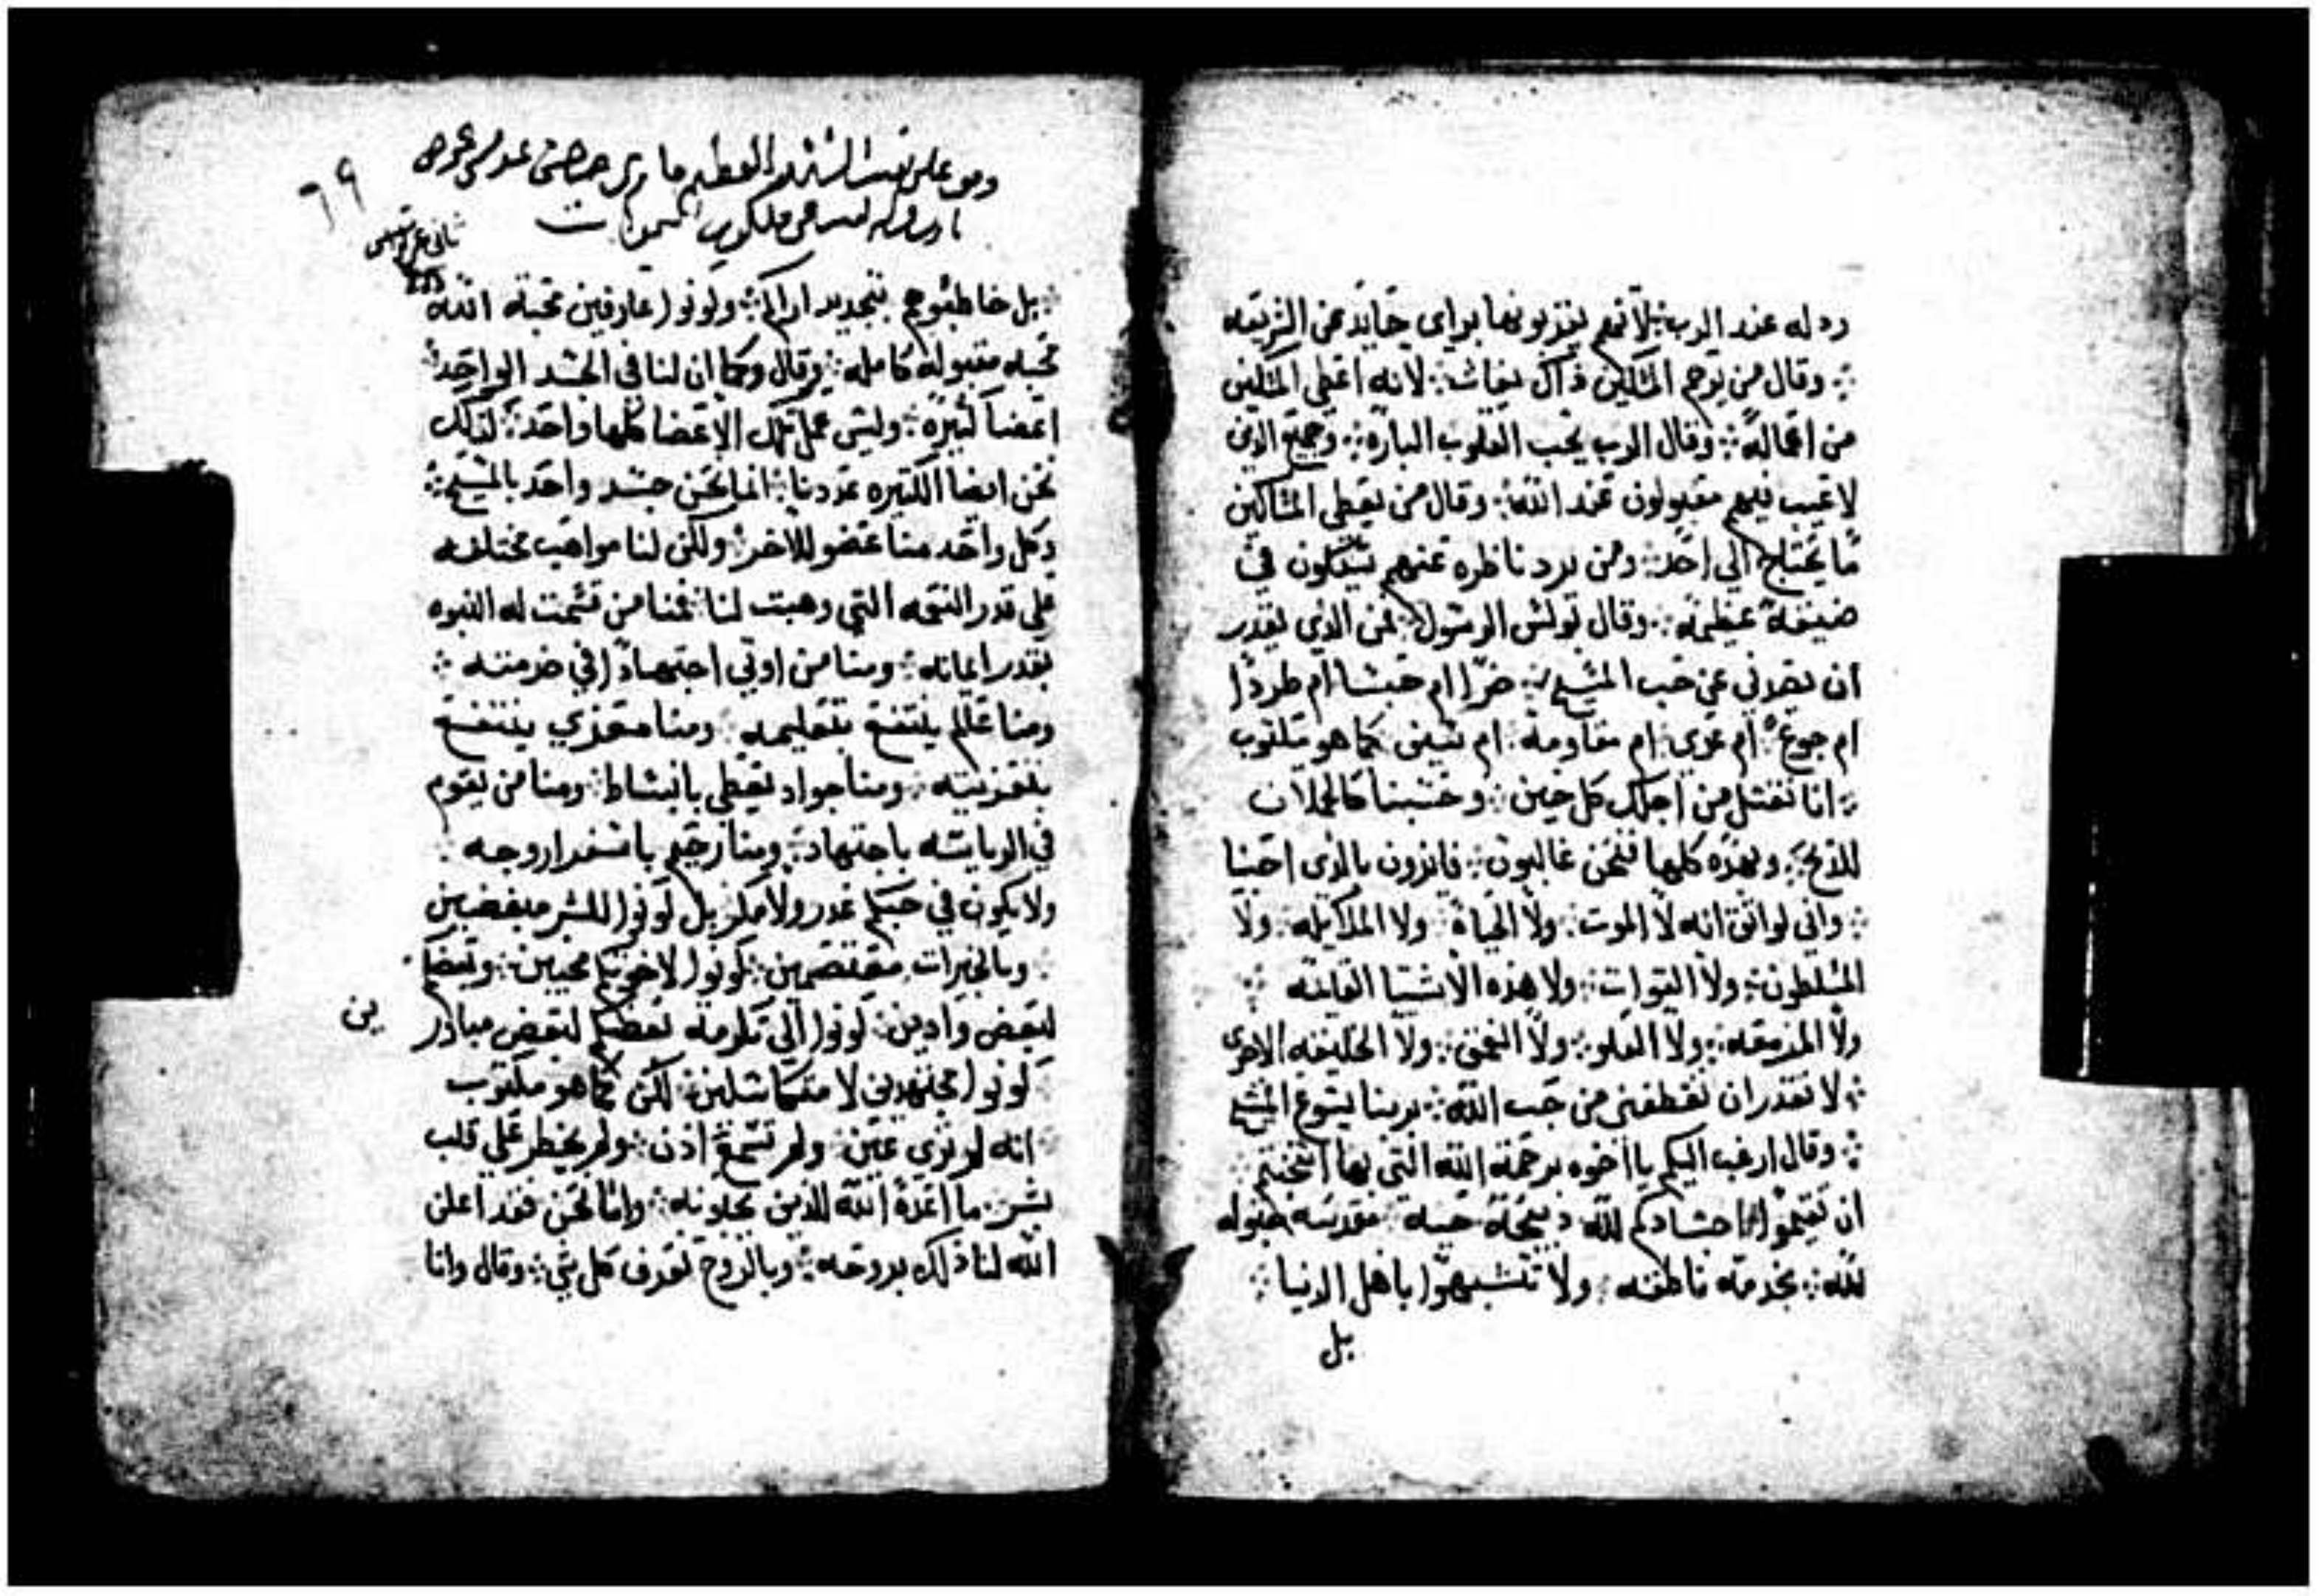 رده له عند الرب ❖ لانهم يقربونها براي حايد عن الشريعه
❖ وقال من يرحم المساكين ذاك يغاث ❖ لانه اعطي المساكين
من اعماله ❖ وقال الرب يحب القلوب الباره ❖ وجميع الذين
لا عيب فيهم مقبولون عند الله ❖ وقال من يعطي المساكين
ما يحتاج الي احد ❖ ومن يرد ناظره عنهم سيكون في
ضيقة عظيمه ❖ وقال بولس الرسول من الذي يقدر
ان يفرقني عن حب المسيح ❖ ضرا ام حبسا ام طردا
ام جوع ام عري ام مقاومه ام سيف كما هو مكتوب
❖ انا نقتل من اجلك كل حين ❖ وحسبنا كالحملان
للذبح ❖ وبهذه كلها فنحن غالبون ❖ فايزون بالذي احبنا
❖ واني لواثق انه لا الموت ❖ ولا الحياة ولا الملايكه ولا
المسلطون ❖ ولا القوات ❖ ولا هذه الاشيا القايمه ❖
ولا المزمعه ❖ ولا العلو ❖ ولا العمق ❖ ولا الخليقه الاخرى
❖ لا تقدر ان تقطعني من حب الله ❖ بربنا يسوع المسيح
❖ وقال ارغب اليكم يا اخوه برحمة الله التي بها
ان تقيموا اجسادكم لله ذبيحة حيه مقدسه مقبوله
لله ❖ بخدمة ناطقه ❖ ولا تتشبهوا باهل الدنيا ❖
بل
٦٩
ملكوت السموات
❖ بل خاطبوهم بتجديد ارايكم ❖ وكونوا عارفين محبة الله
محبه مقبوله كامله ❖ وقال وكما ان لنا في الجسد الواحد ❖
اعضا كثيره ❖ وليس عمل تلك الاعضا كلها واحد ❖ كذلك
نحن ايضا الكثيره عددنا ❖ انما نحن جسد واحد بالمسيح ❖
وكل واحد منا عضو للاخر ❖ ولكن لنا مواهب مختلفه
علي قدر النعمه التي وهبت لنا فمنا من قسمت له النبوه
بقدر ايمانه ❖ ومنا من اوتي اجتهادا في خدمته ❖
ومنا عالم ينتفع بتعليمه ❖ ومنا معزي ينتفع
بتعزيته ❖ ومنا جواد يعطي بانبساط ❖ ومنا من يقوم
في الرياسه باجتهاد ❖ ومنا رحيم
ولا يكون في حبكم غدر ولا مكر بل كونوا للشر مبغضين
❖ وبالخيرات معتصمين ❖ كونوا لاخوتكم محبين ❖ وبعضكم
لبعض وادين ❖ كونوا الي تكرمة بعضكم لبعض مبادر
ين
كونوا مجتهدين لا متكاسلين ❖ لكن كما هو مكتوب
انه لم تري عين ❖ ولم تسمع اذن ❖ ولم يخطر علي قلب
بشر ❖ ما اعده الله للذين يحبونه ❖ واما نحن فقد اعلن
الله لنا ذلك بروحه ❖ وبالروح نعرف كل شي ❖ وقال وانا